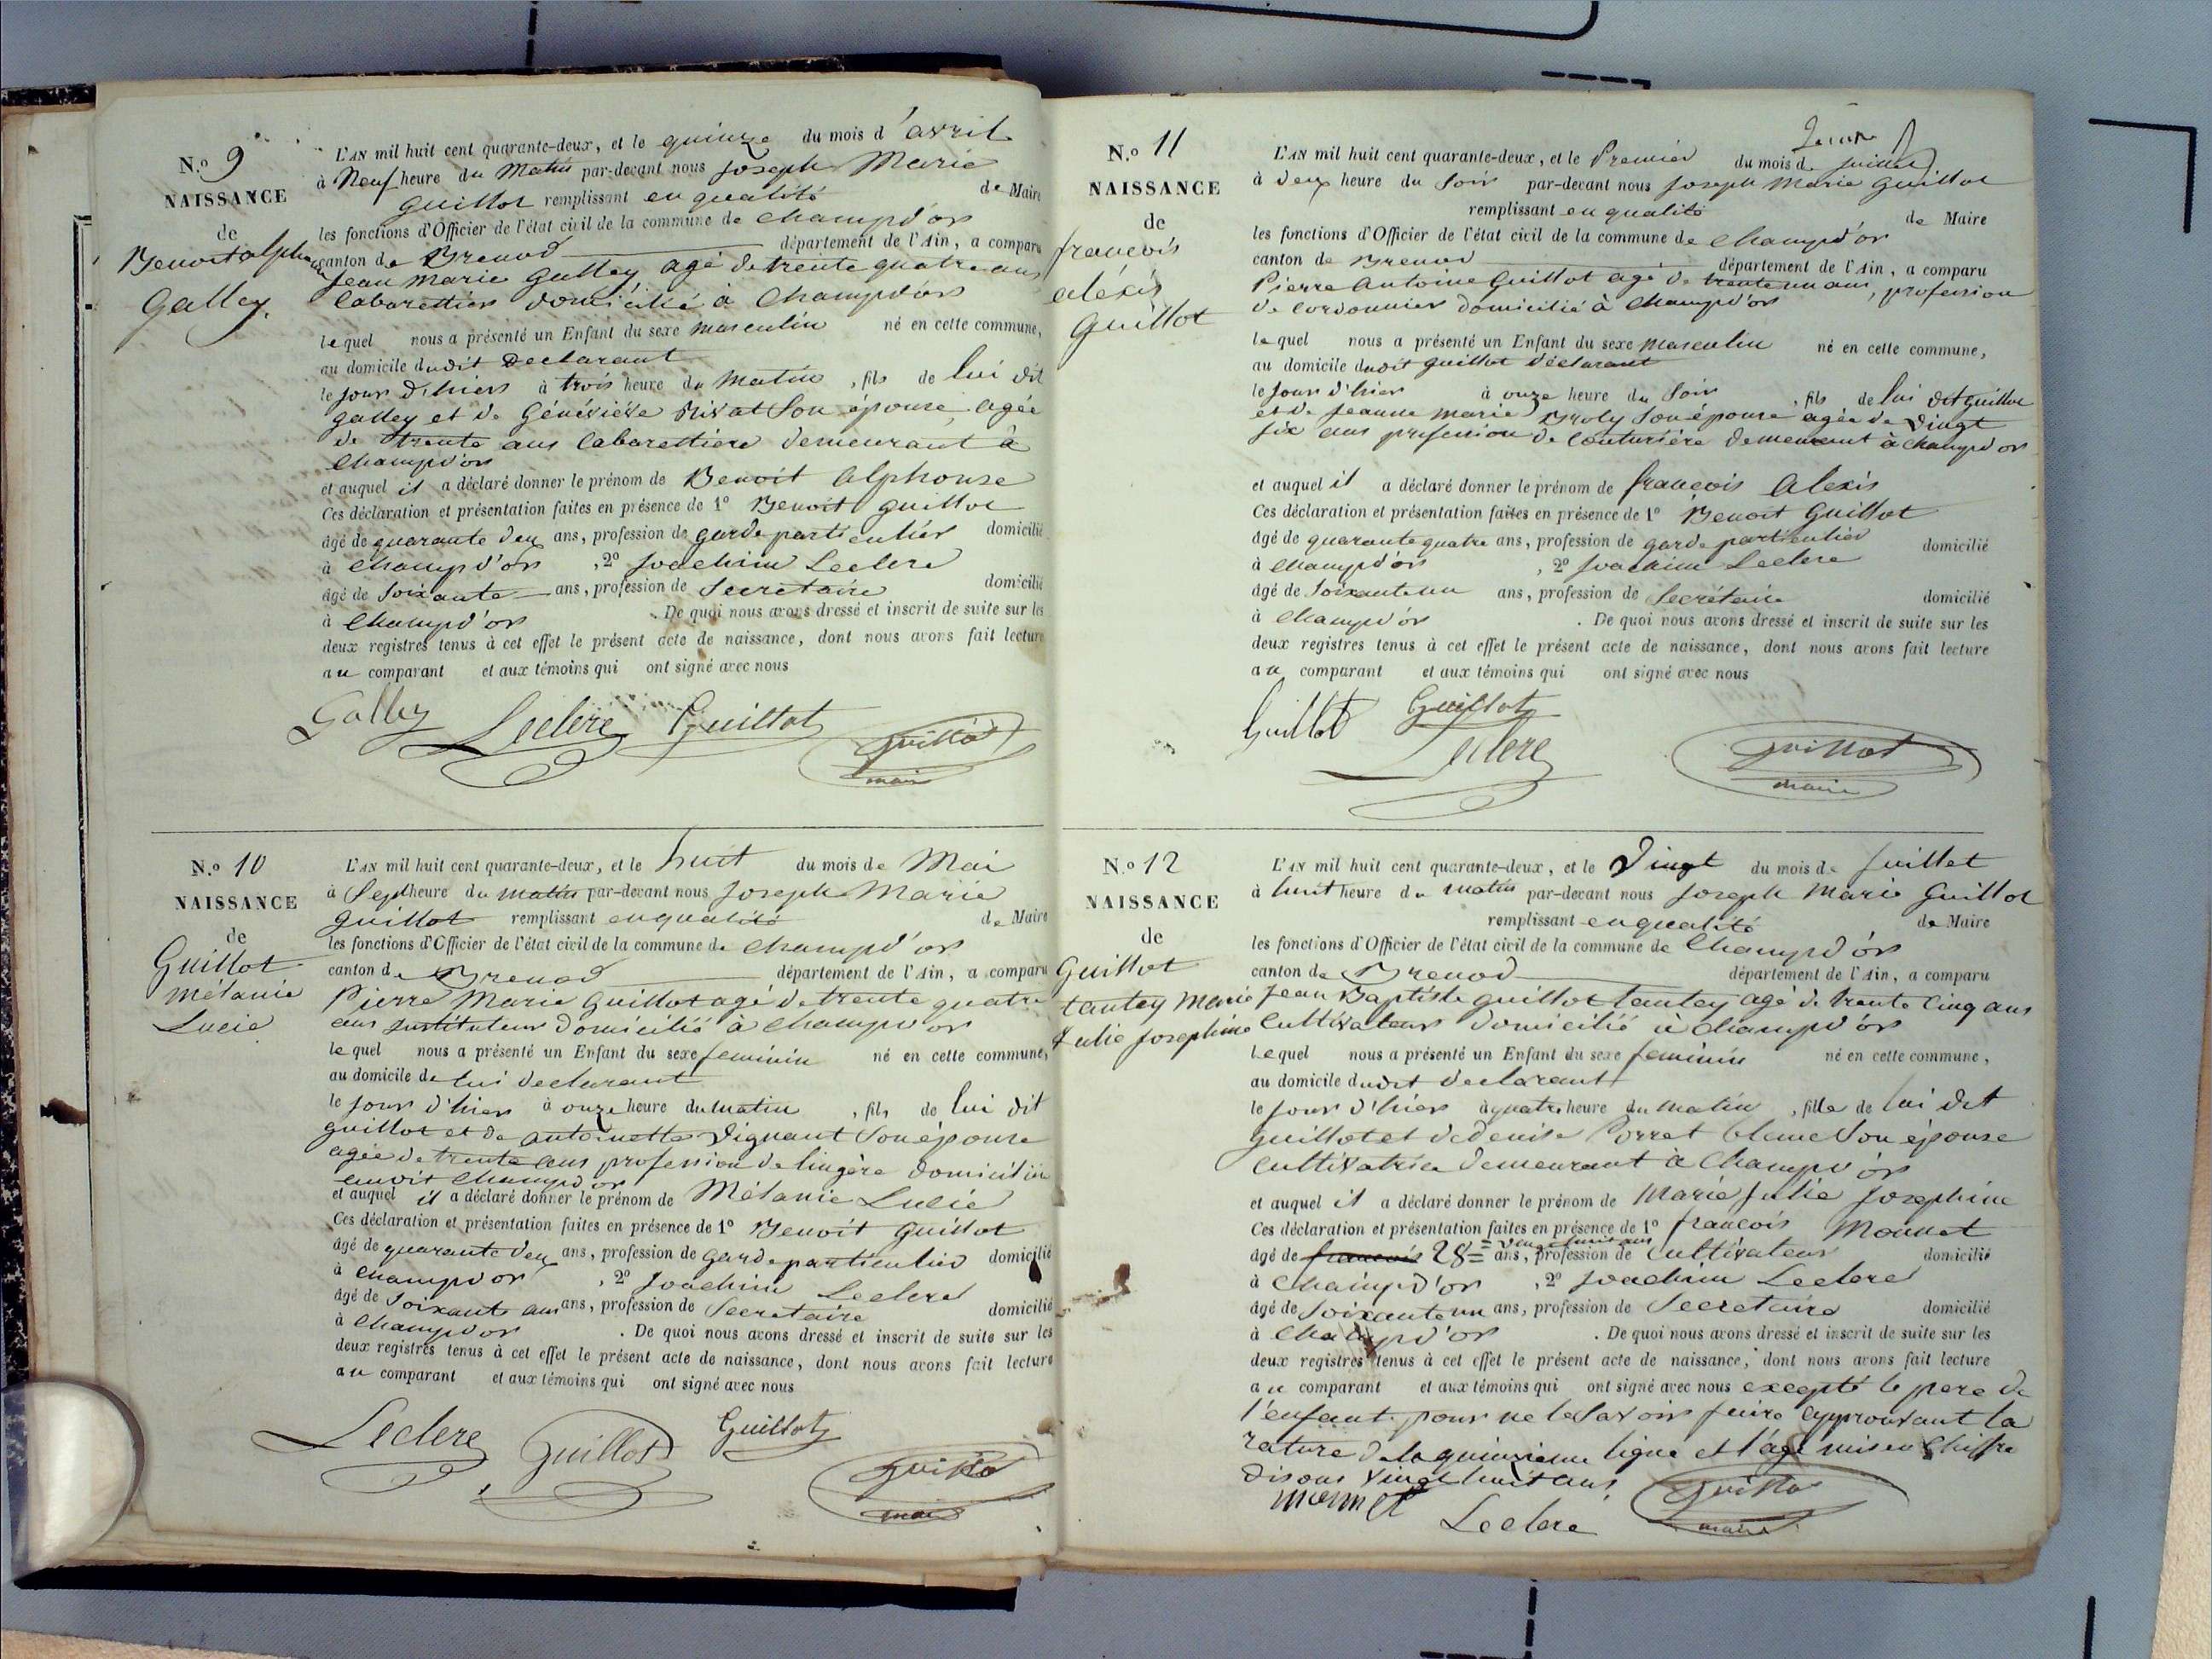 N.º 9
NAISSANCE
de
Benoit alphonse
Galley.
L'AN mil huit cent quarante-deux, et le quinze du mois d'avril
à Neuf heure du Matin par-devant nous Joseph Marie
Guillot remplissant en qualité de Maire
les fonctions d'Officier de l'état civil de la commune de Champd'or
canton de Brenod département de l'Ain, a comparu
Jean Marie Galley agé de trente quatre ans
Cabarettier domicilié à Champd'or
lequel nous a présenté un Enfant du sexe masculin né en cette commune,
au domicile dudit Déclarant
le jour d'hier à trois heure du Matin, fils de lui dit
galley et de Généviève Nivat Son épouse, agée
de trente ans Cabarettiere demeurant à
Champd'or
et auquel il a déclaré donner le prénom de Benoit Alphonse
Ces déclaration et présentation faites en présence de 1º Benoit guillot
âgé de quarante deux ans, profession de garde particulier domicilié
à Champd'or, 2º Joachim Leclerc
âgé de Soixante ans, profession de Secretaire domicilié
à Champd'or. De quoi nous avons dressé et inscrit de suite sur les
deux registres tenus à cet effet le présent acte de naissance, dont nous avons fait lecture
au comparant et aux témoins qui ont signé avec nous
Galley Leclerc Guillot Guillot
maire
N.º 10
NAISSANCE
de
Guillot
mélanie
Lucie
L'AN mil huit cent quarante-deux, et le huit du mois de Mai
à Sept heure du matin par-devant nous Joseph Marie
guillot remplissant en qualité de Maire
les fonctions d'Officier de l'état civil de la commune de Champd'or
canton de Brenod département de l'Ain, a comparu
Pierre Marie Guillot agé de trente quatre
ans instituteur domicilié à Champd'or
lequel nous a présenté un Enfant du sexe feminin né en cette commune,
au domicile de lui declarant
le jour d'hier à onze heure du matin, fils de lui dit
guillot et de antoinette Vignant Son épouse
agée de trente ans profession de lingère domiciliée
audit Champd'or
et auquel il a déclaré donner le prénom de Mélanie Lucie
Ces déclaration et présentation faites en présence de 1º Benoit Guillot
âgé de quarante deux ans, profession de garde particulier domicilié
à Champd'or, 2º Joachim Leclerc
âgé de Soixante ans ans, profession de Secretaire domicilié
à Champd'or. De quoi nous avons dressé et inscrit de suite sur les
deux registres tenus à cet effet le présent acte de naissance, dont nous avons fait lecture
au comparant et aux témoins qui ont signé avec nous
Leclerc Guillot Guillot Guillot
maire
N.º 11
NAISSANCE
de
françois
alexis
Guillot
L'AN mil huit cent quarante-deux, et le Premier du mois de juillet
à deux heure du Soir par-devant nous Joseph Marie Guillot
remplissant en qualité de Maire
les fonctions d'Officier de l'état civil de la commune de Champd'or
canton de Brenod département de l'Ain, a comparu
Pierre Antoine Guillot agé de trente un ans, profession
de Cordonnier domicilié à Champd'or
lequel nous a présenté un Enfant du sexe Masculin né en cette commune,
au domicile dudit guillot déclarant
le jour d'hier à onze heure du Soir, fils de lui dit guillot
et de jeanne marie Broly Son épouse agée de vingt
six ans profession de Couturière demeurant à Champd'or
et auquel il a déclaré donner le prénom de françois Alexis
Ces déclaration et présentation faites en présence de 1º Benoit Guillot
âgé de quarante quatre ans, profession de garde particulier domicilié
à Champd'or, 2º Joachim Leclerc
âgé de Soixante un ans, profession de Secrétaire domicilié
à Champd'or. De quoi nous avons dressé et inscrit de suite sur les
deux registres tenus à cet effet le présent acte de naissance, dont nous avons fait lecture
au comparant et aux témoins qui ont signé avec nous
Guillot Guillot
Leclerc Guillot
maire
N.º 12
NAISSANCE
de
Guillot
tantey Marie
Julie Josephine
L'AN mil huit cent quarante-deux, et le Vingt du mois de Juillet
à huit heure du matin par-devant nous Joseph Marie Guillot
remplissant en qualité de Maire
les fonctions d'Officier de l'état civil de la commune de Champd'or
canton de Brenod département de l'Ain, a comparu
Jean Baptiste guillot tantey agé de trente Cinq ans
Cultivateur domicilié à Champd'or
Lequel nous a présenté un Enfant du sexe feminin né en cette commune,
au domicile dudit declarant
le jour d'hier à quatre heure du matin, fille de lui dit
guillot et de denise Porret blanc Son épouse
Cultivatrice demeurant à Champd'or
et auquel il a déclaré donner le prénom de Marie Julie Josephine
Ces déclaration et présentation faites en présence de 1º françois Monnet
= vingt huit ans
âgé de françois 28= ans, profession de Cultivateur domicilié
à Champd'or, 2º Joachim Leclerc
âgé de Soixante un ans, profession de Secretaire domicilié
à Champd'or. De quoi nous avons dressé et inscrit de suite sur les
deux registres tenus à cet effet le présent acte de naissance, dont nous avons fait lecture
au comparant et aux témoins qui ont signé avec nous excepté le pere de
l'enfant pour ne le Savoir faire approuvant la
rature de la quinzieme ligne et l'âge mis en Chiffre
disons vingt huit ans
monnet Leclerc Guillot
maire